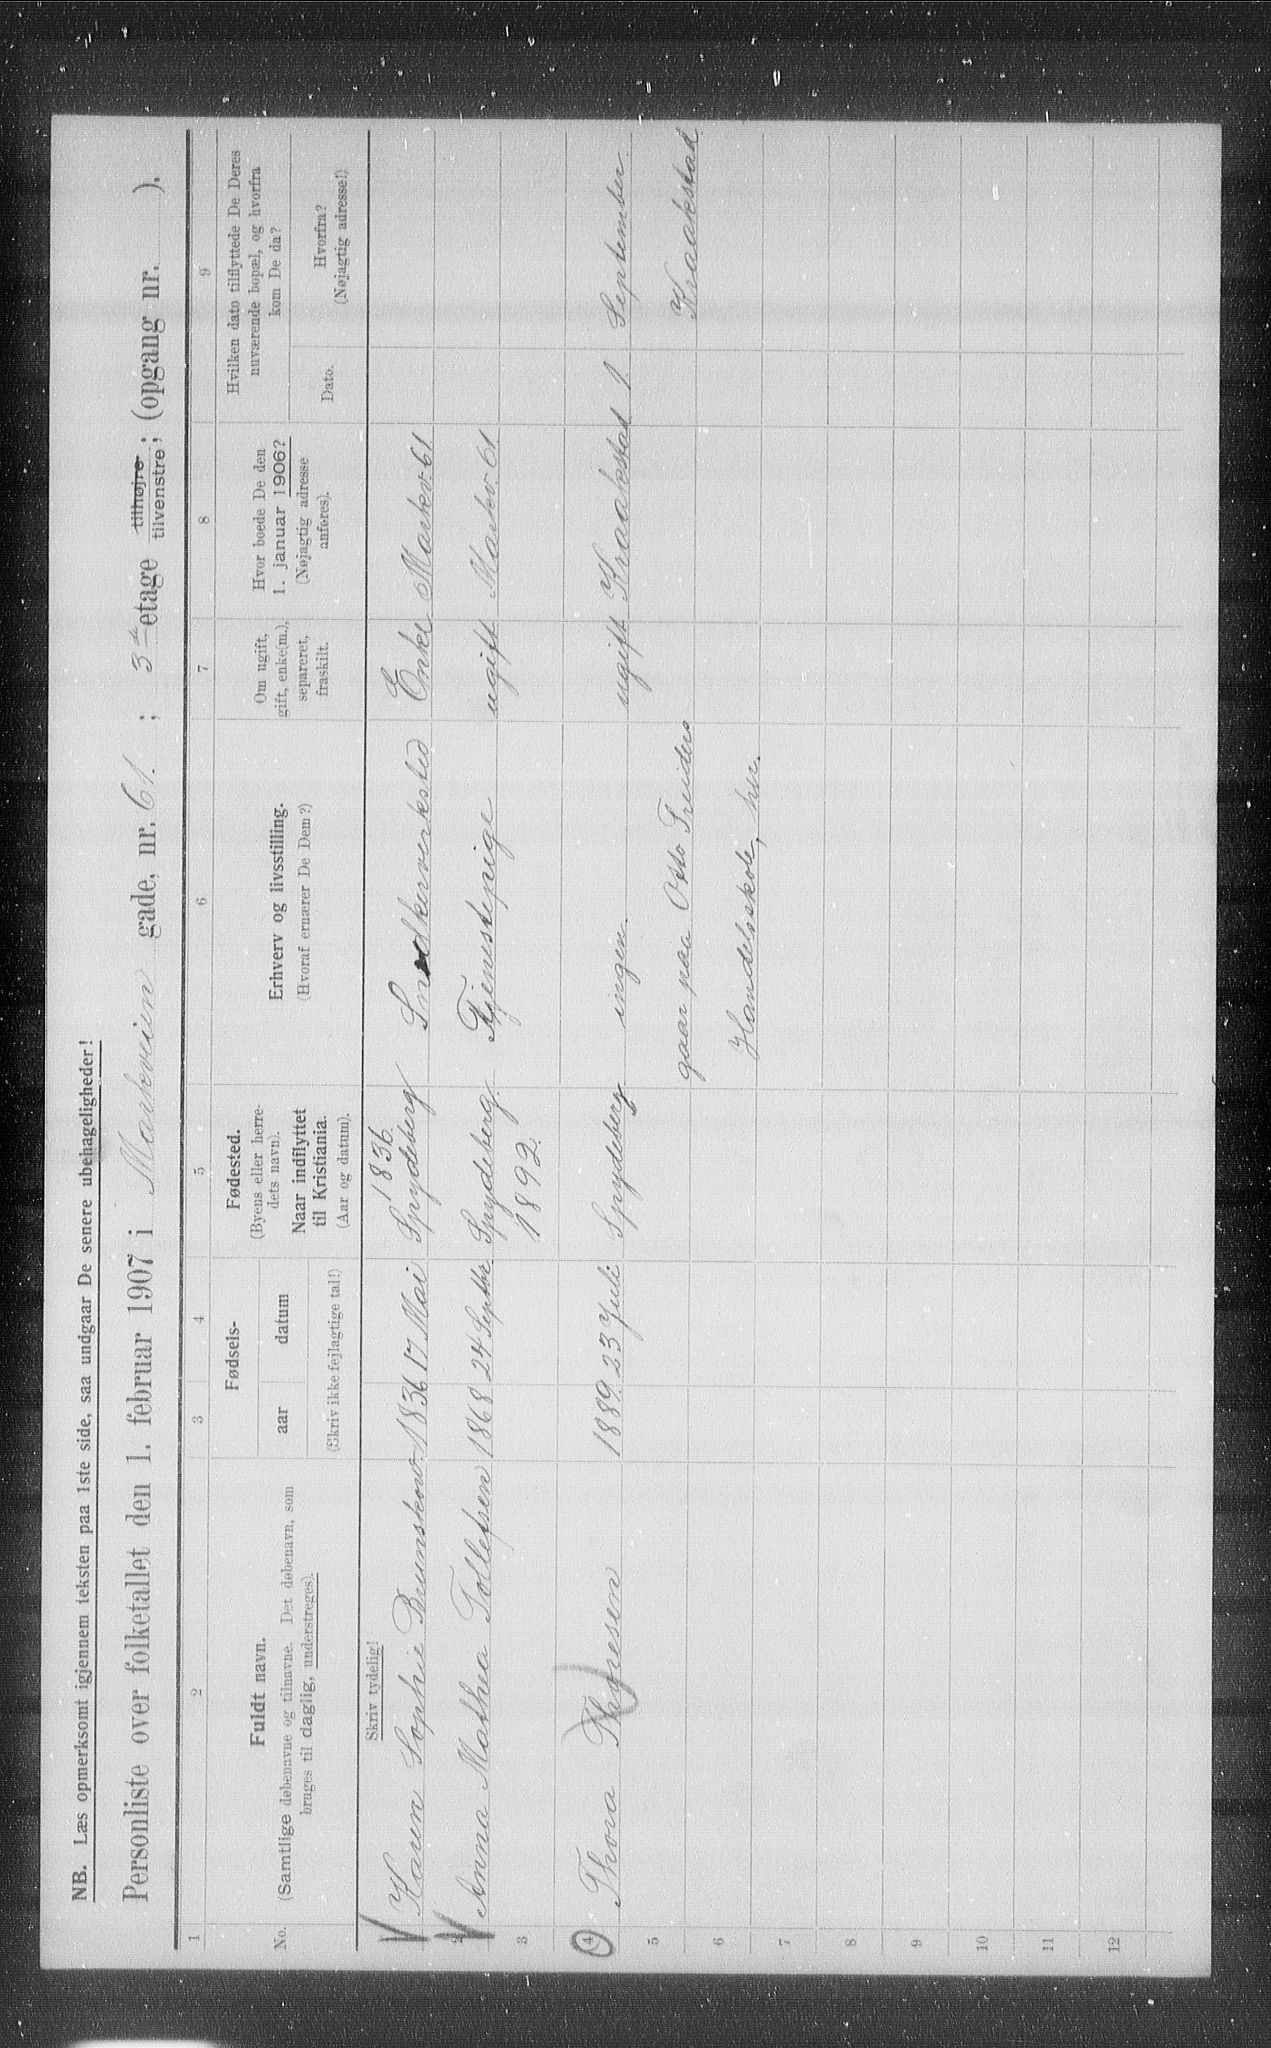 NB. Læs opmerksomt igjennem teksten paa 1ste side, saa undgaar De senere ubehageligheder!
Personliste over folketallet den 1. februar 1907 i Markveien gade, nr. 61. ; 3die etage tilhøjre tilvenstre ; (opgang nr. ).
1 2 3 4 5 6 7 8 9
No.
Fuldt navn.
(Samtlige døbenavne og tilnavne. Det døbenavn, som
bruges til daglig, understreges).
Fødsels-
aar datum
(Skriv ikke fejlagtige tal!)
Fødested.
(Byens eller herre-
dets navn).
Naar indflyttet
til Kristiania.
(Aar og datum).
Erhverv og livsstilling.
(Hvoraf ernærer De Dem?)
Om ugift,
gift, enke(m.),
separeret,
fraskilt.
Hvor boede De den
1. januar 1906?
(Nøjagtig adresse
anføres).
Hvilken dato tilflyttede De Deres
nuværende bopæl, og hvorfra
kom De da?
Dato.
Hvorfra?
(Nøjagtig adresse!)
Skriv tydelig!
1836.
Karen Sophie Brunskow. 1836 17 Mai Spydeberg Snedkerverksted Enke Markv. 61
2 Anna Mathea Tollefsen 1868 24 Septbr Spydeberg. Tjenestepige ugift Markv. 61
3 1892.
4 Thora Thoresen 1889. 23 Juli Spydeberg ingen. ugift Kraakestad 1. September
5 gaar paa Otto Treiders Kraakstad
6 Handelsskole, her.
7
8
9
10
11
12